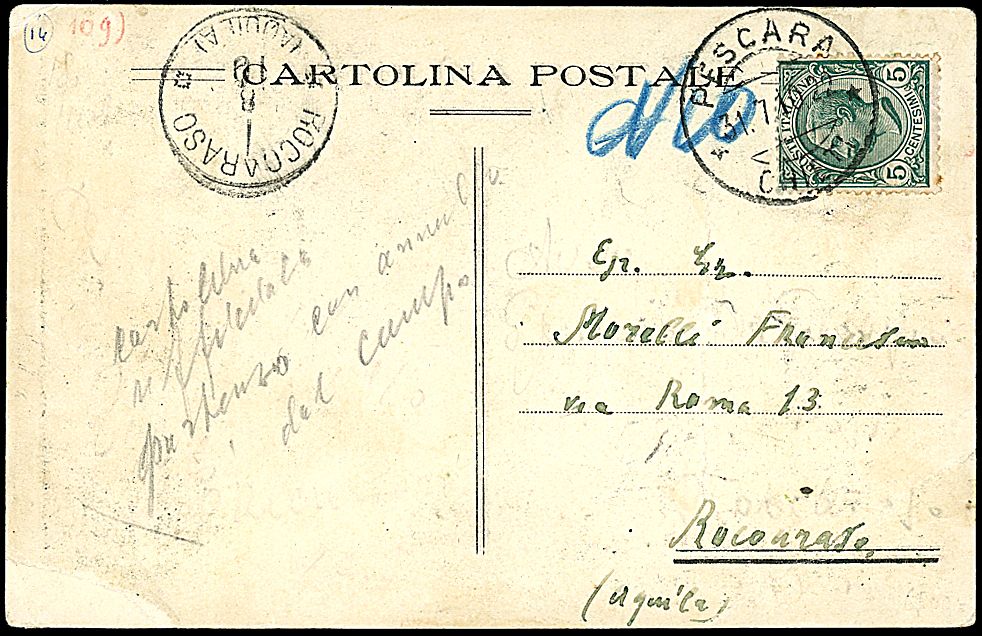 14 109)
ROCCARASO (AQUILA)
1 8
CARTOLINA POSTALE
PESCARA
31.7
POSTE ITALIANE
5 CENTESIMI 5
Egr. Gr.
Morelli Francesco
via Roma 13
Roccaraso,
(Aquila)
cartolina
con annullo
del campo